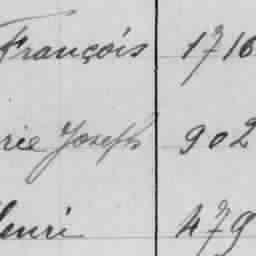 François 1716
rie Joseph 902
Henri 479